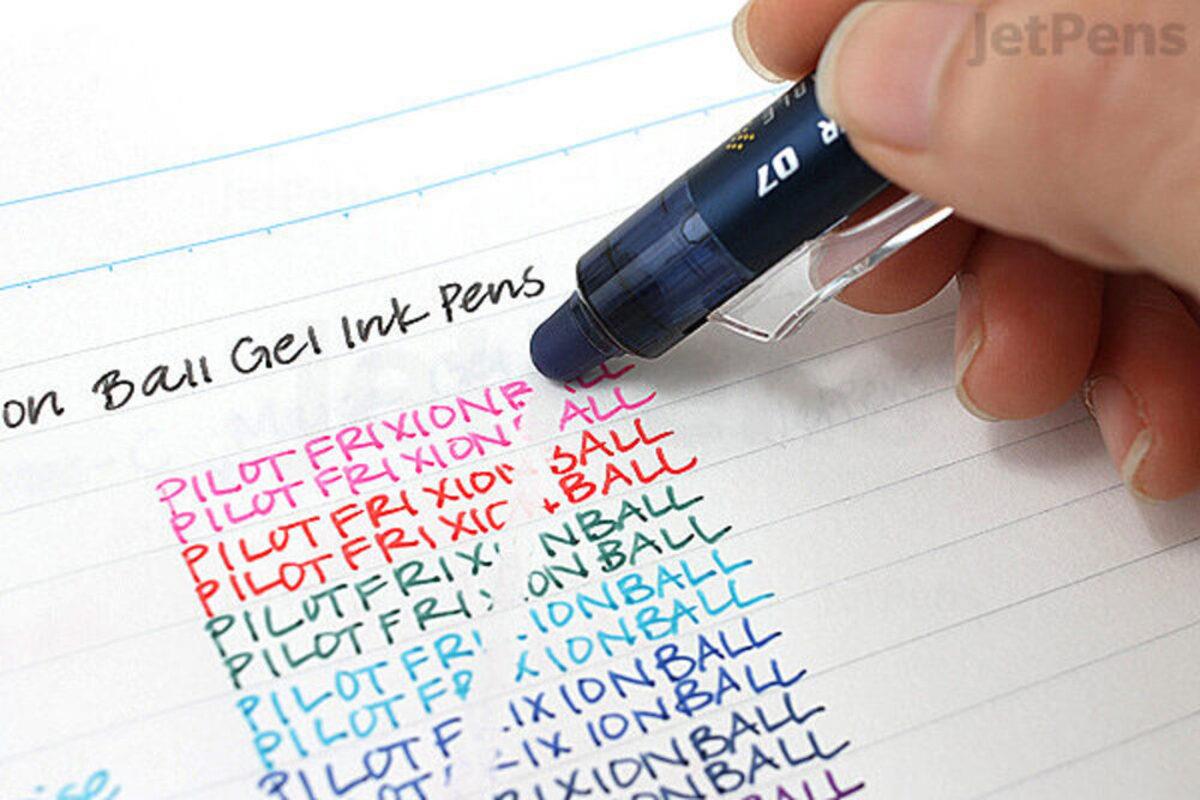 JetPens
R 07
on Ball Gel Ink Pens
PILOT FRIXION B ALL
PILOT FRIXION ALL
PILOT FRIXION BALL
PILOT FRIXIO BALL
PILOT FRIX NBALL
PILOT FRI ON BALL
PILOT FRI IONBALL
PILOT FR XIONBALL
PILOT F IXIONBALL
PILOT IXIONBALL
RIXIONBALL
IONBALL
ise